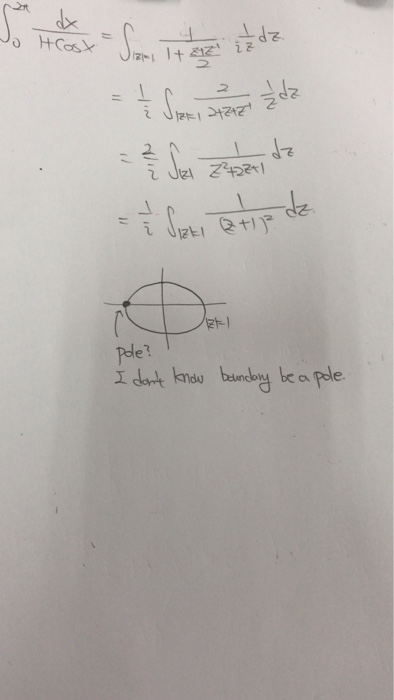 ∫₀^{2π} dx/(1+cosx) = ∫_{|z|=1} 1/(1+(z+z⁻¹)/2) 1/(iz) dz
= 1/i ∫_{|z|=1} 2/(2+z+z⁻¹) 1/z dz
= 2/i ∫_{|z|=1} 1/(z²+2z+1) dz
= 1/i ∫_{|z|=1} 1/(z+1)² dz.
|z|=1
pole?
I don't know boundary be a pole.